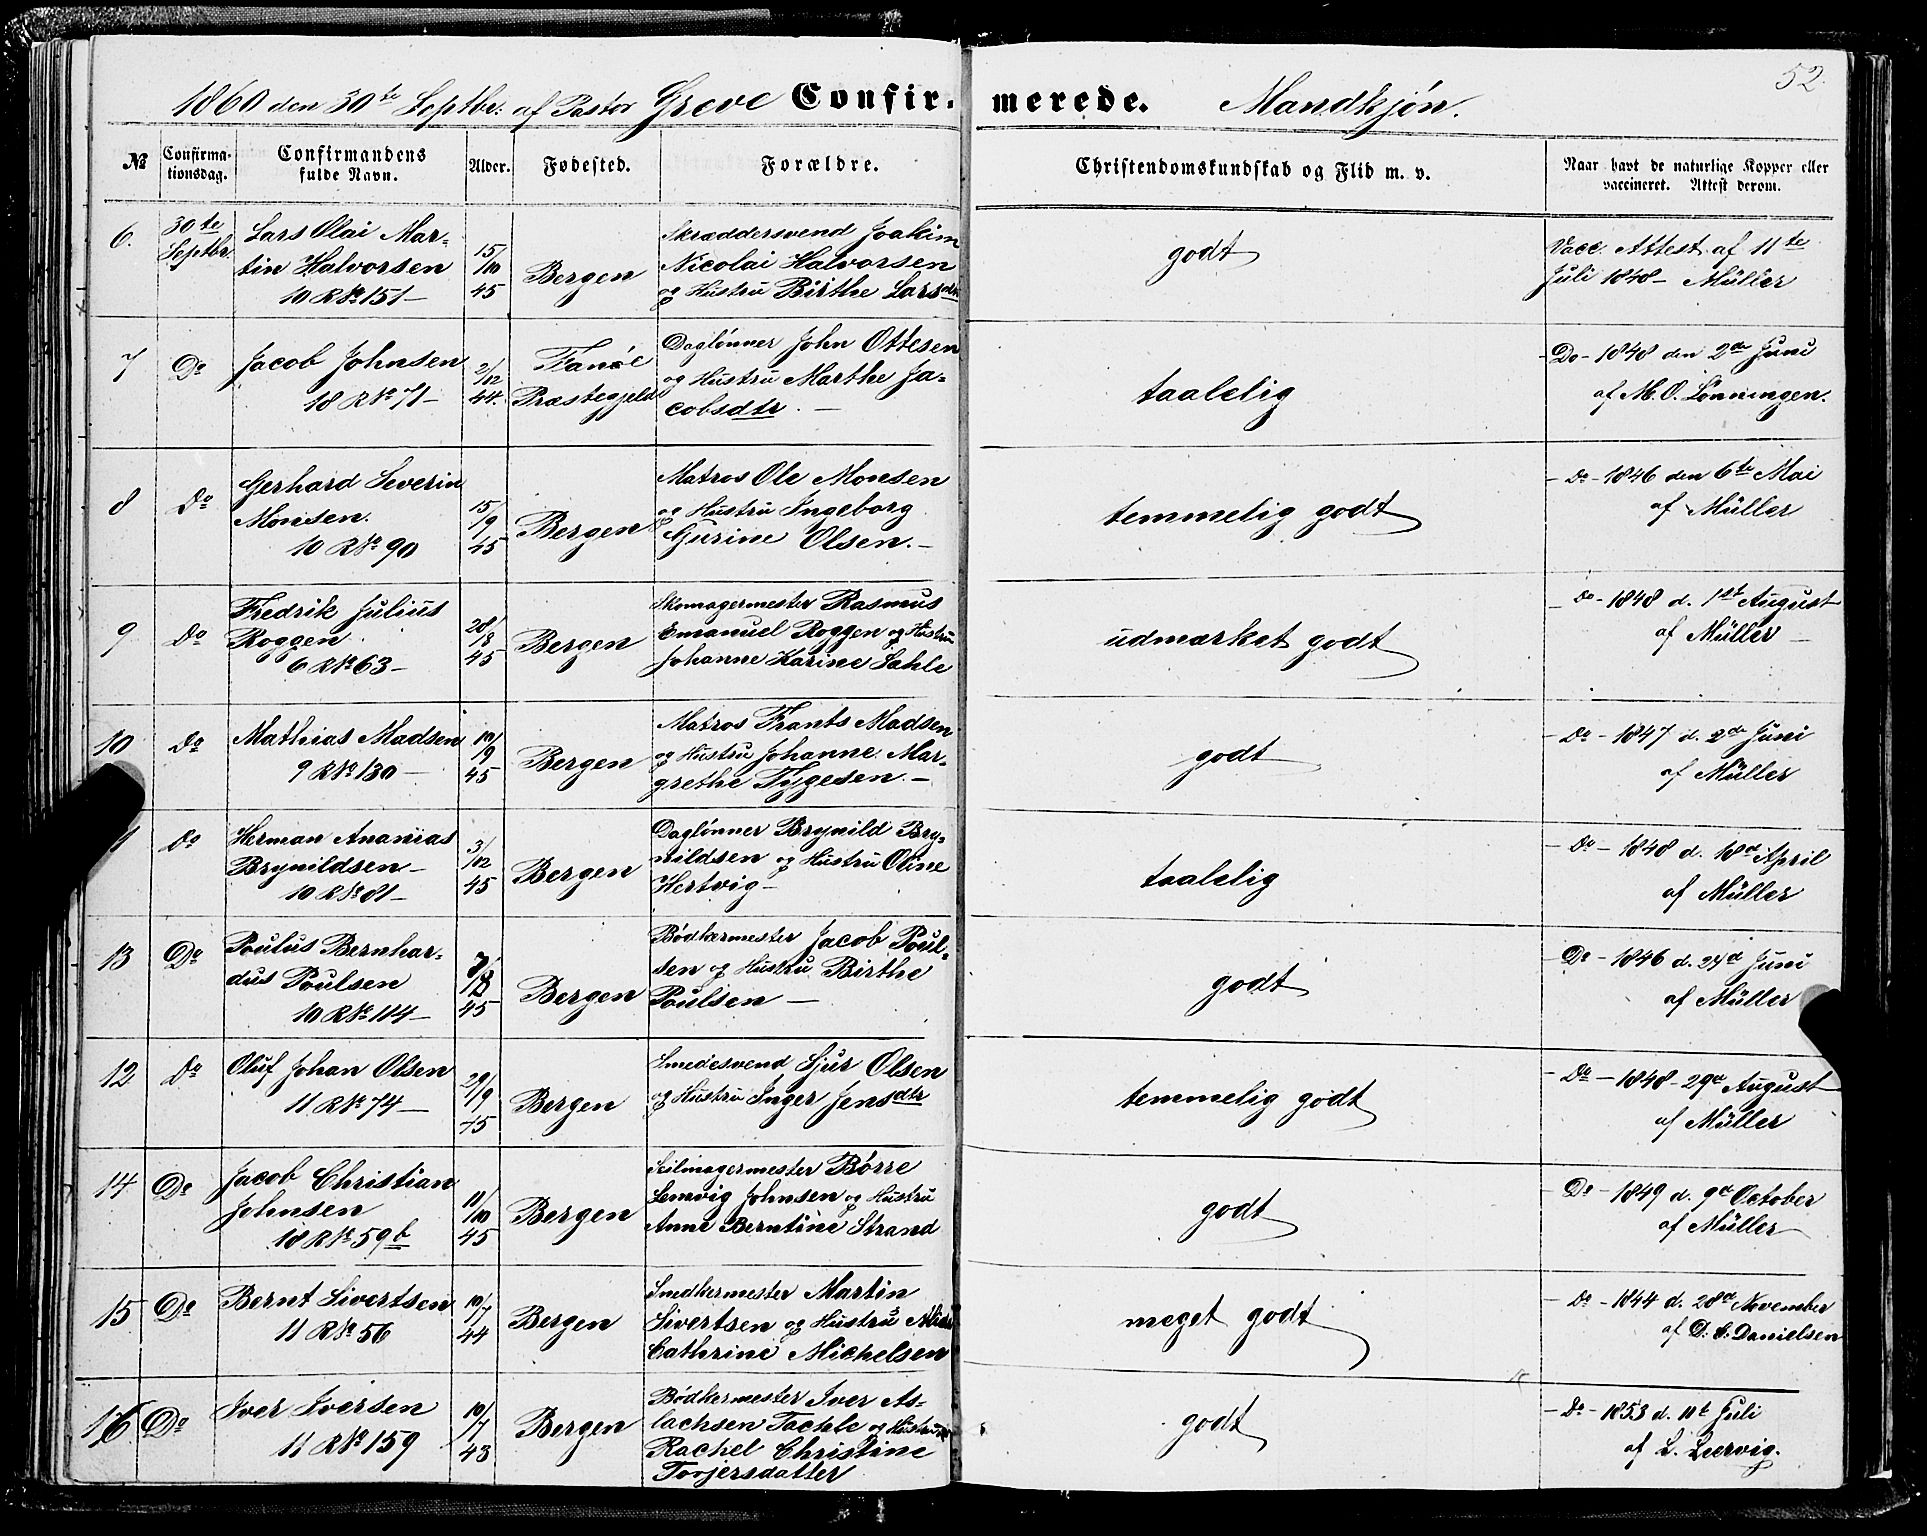 52.
1860 den 30te Septbr: af Pastor Greve Confirmerede. Mandkjøn.
№ Confirmationsdag. Confirmandens fulde Navn. Alder. Fødested. Forældre. Christendomskundskab og Flid m. v. Naar havt de naturlige Kopper eller vaccineret. Attest derom.
6. 30te Septbr. Lars Olai Mar-
tin Halvorsen
10 R № 151 —
15/10 45
Bergen
Skræddersvend Joakim
Nicolai Halvorsen
og Hustru Birthe Larsdtr
godt
Vacc. Attest af 11te
Juli 1848 — Müller
7 Do Jacob Johnsen
18 R № 71 —
2/12 44.
Fanøe
Præstegjeld
Daglønner John Ottesen
og Hustru Marthe Ja-
cobsdtr. —
taalelig
- Do - 1848 den 2de Juni
af M. O. Lønningen.
8 Do Gerhard Severin
Monsen.
10 R № 90
15/9 45
Bergen
Matros Ole Monsen
og Hustru Ingeborg
Gurine Olsen. —
temmelig godt
- Do - 1846 den 6te Mai
af Müller
9 Do Fredrik Julius
Roggen
6 R № 63 —
28/8 45
Bergen
Skomagermester Rasmus
Emanuel Roggen og Hustru
Johanne Karine Sahle
udmærket godt
- Do - 1848 d. 1st August
af Müller —
10 Do Mathias Madsen
9 R № 130 —
10/9 45
Bergen
Matros Frants Madsen
og Hustru Johanne Mar-
grethe Tygesen. —
godt
- Do - 1847 d. 2de Juni
af Müller
Do Herman Ananias
Brynildsen —
10 R № 81 —
3/12 45
Bergen
Daglønner Brynild Bry-
nildsen og Hustru Oline
Hertvig —
taalelig
- Do - 1848 d. 18d April
af Müller
13 Do Poulus Bernhar-
dus Poulsen
10 R № 114 —
45
Bergen
Bødkermester Jacob Poul-
sen og Hustru Birthe
Poulsen —
godt
Do - 1846 d. 24d Juni
af Müller
12 Do Oluf Johan Olsen
11 R № 74 —
29/9 45
Bergen
Smedesvend Sjur Olsen
og Hustru Inger Jensdtr
temmelig godt
- Do - 1848 - 29d August
af Müller
14 Do Jacob Christian
Johnsen
18 R № 59b
11/10 45
Bergen
Seilmagermester Børre
Lemvig Johnsen og Hustru
Anne Berntine Strand
godt
- Do - 1849 d. 9d October
af Müller
15 Do Bernt Sivertsen
11 R № 56
10/7 44
Bergen
Snedkermester Martin
Sivertsen og Hustru
Cathrine Michelsen
meget godt
- Do - 1844 d. 28d November
af D. C. Danielsen
16 Do Iver Iversen
11 R № 159
10/7 43
Bergen
Bødkermester Iver As-
lachsen Tachle og Hustru
Rachel Christine
Torjersdatter
godt
- Do - 1853 d. 11t Juli
af L. Leervig.